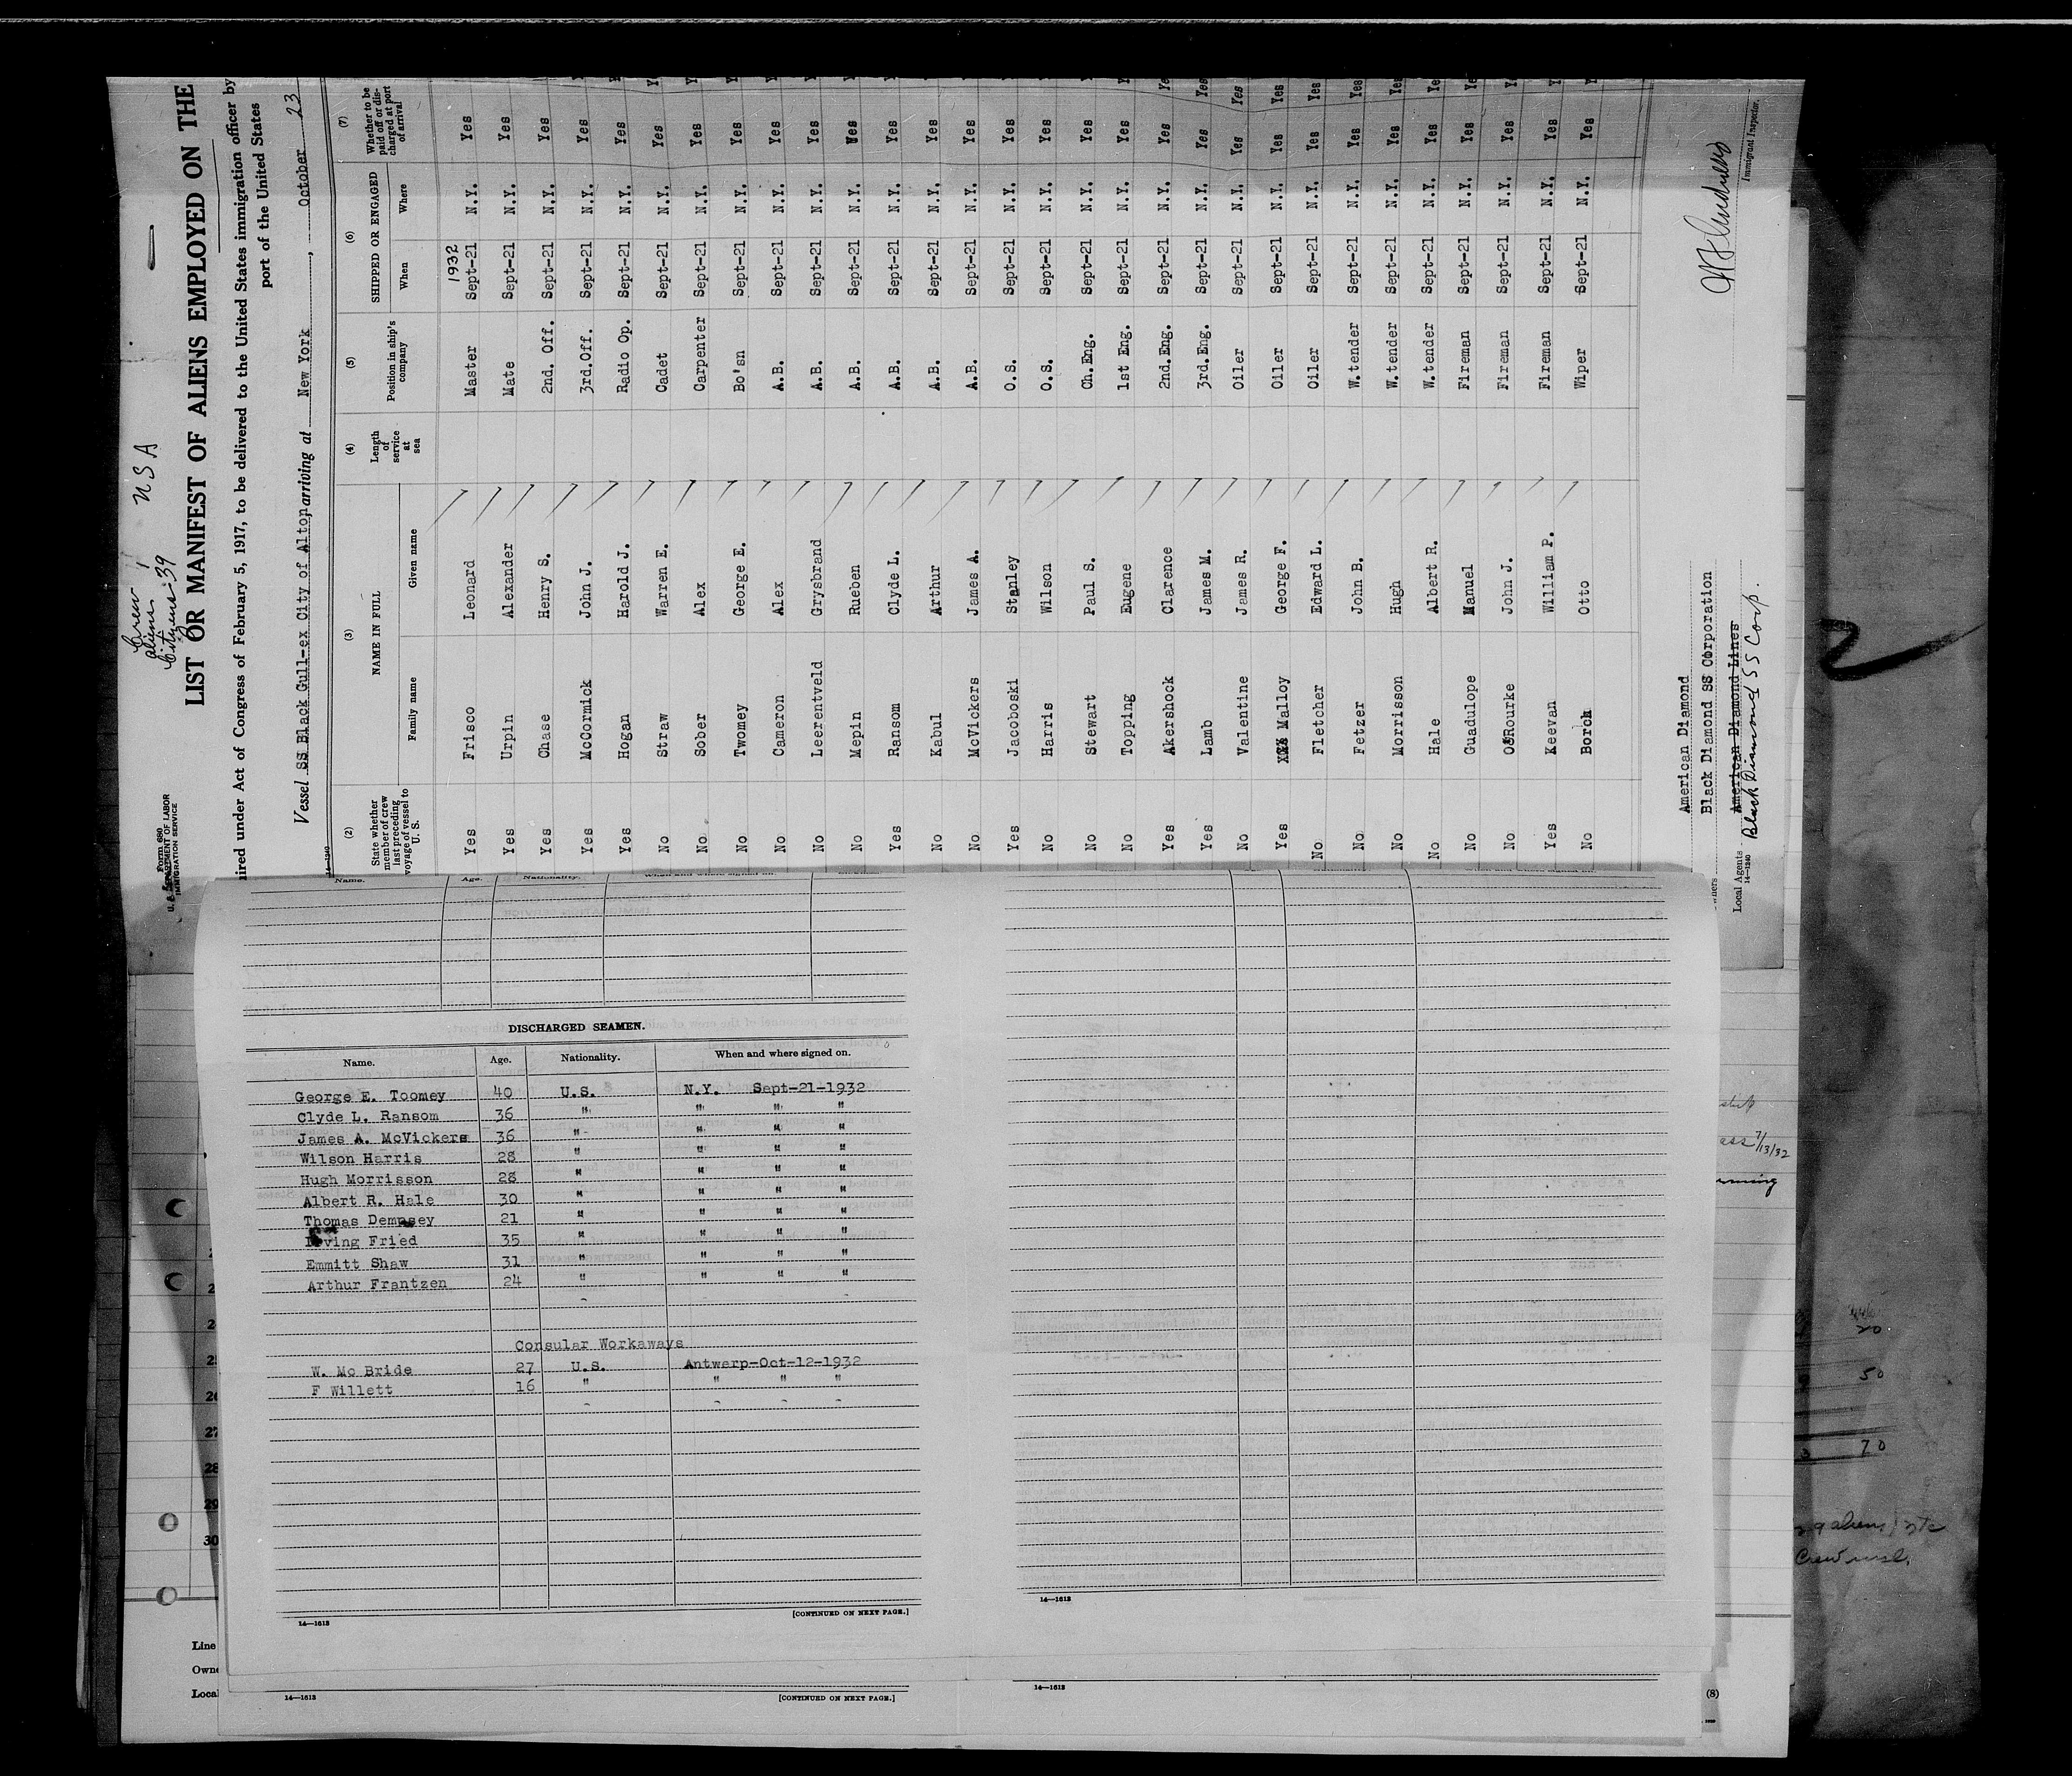 Form 680
U. S. DEPARTMENT OF LABOR
IMMIGRATION SERVICE
Crew
Aliens 1
Citizens: 39
USA
LIST OR MANIFEST OF ALIENS EMPLOYED ON THE
uired under Act of Congress of February 5, 1917, to be delivered to the United States immigration officer by
port of the United States
Vessel SS Black Gull-ex City of Alton, arriving at New York, October 23
14—1240
(2) (3) (4) (5) (6) (7)
State whether member of crew last preceding voyage of vessel to U. S. NAME IN FULL Length of service at sea Position in ship's company SHIPPED OR ENGAGED Whether to be paid off or discharged at port of arrival
Family name Given name When Where
1932
Yes Frisco Leonard Master Sept-21 N.Y. Yes
Yes Urpin Alexander Mate Sept-21 N.Y. Yes
Yes Chase Henry S. 2nd. Off. Sept-21 N.Y. Yes
Yes McCormick John J. 3rd.Off. Sept-21 N.Y. Yes
Yes Hogan Harold J. Radio Op. Sept-21 N.Y. Yes
No Straw Warren E. Cadet Sept-21 N.Y. Yes
No Sober Alex Carpenter Sept-21 N.Y. Yes
No Twomey George E. Bo'sn Sept-21 N.Y. Yes
No Cameron Alex A.B. Sept-21 N.Y. Yes
No Leerentveld Grysbrand A.B. Sept-21 N.Y. Yes
No Mepin Rueben A.B. Sept-21 N.Y. Yes
Yes Ransom Clyde L. A.B. Sept-21 N.Y. Yes
No Kabul Arthur A.B. Sept-21 N.Y. Yes
No McVickers James A. A.B. Sept-21 N.Y. Yes
Yes Jacoboski Stanley O.S. Sept-21 N.Y. Yes
No Harris Wilson O.S. Sept-21 N.Y. Yes
No Stewart Paul S. Ch.Eng. Sept-21 N.Y. Yes
No Topping Eugene 1st Eng. Sept-21 N.Y. Yes
Yes Akershock Clarence 2nd.Eng. Sept-21 N.Y. Yes
Yes Lamb James M. 3rd.Eng. Sept-21 N.Y. Yes
No Valentine James R. Oiler Sept-21 N.Y. Yes
Yes Malloy George F. Oiler Sept-21 N.Y. Yes
No Fletcher Edward L. Oiler Sept-21 N.Y. Yes
No Fetzer John B. W.tender Sept-21 N.Y. Yes
No Morrisson Hugh W.tender Sept-21 N.Y. Yes
No Hale Albert R. W.tender Sept-21 N.Y. Yes
No Guadulope Manuel Fireman Sept-21 N.Y. Yes
No O'Rourke John J. Fireman Sept-21 N.Y. Yes
Yes Keevan William P. Fireman Sept-21 N.Y. Yes
No Borch Otto Wiper Sept-21 N.Y. Yes
American Diamond
Black Diamond SS Corporation
Local Agents American Diamond Lines
Black Diamond SS Corp.
14—1240
Immigrant Inspector.
Name. Age. Nationality. When and where signed on.
DISCHARGED SEAMEN.
Name. Age. Nationality. When and where signed on.
George E. Toomey 40 U.S. N.Y. Sept-21-1932
Clyde L. Ransom 36 " " " "
James A. McVickers 36 " " " "
Wilson Harris 28 " " " "
Hugh Morrisson 28 " " " "
Albert R. Hale 30 " " " "
Thomas Dempsey 21 " " " "
Irving Fried 35 " " " "
Emmitt Shaw 31 " " " "
Arthur Frantzen 24 " " " "
Consular Workaways
W. Mc Bride 27 U.S. Antwerp-Oct-12-1932
F Willett 16 " " " "
14—1613 [CONTINUED ON NEXT PAGE.]
14—1613
14—1613 [CONTINUED ON NEXT PAGE.]
14—1613
27
28
29
30
Line
Owne
Local
(8)
7/13/32
20
50
70